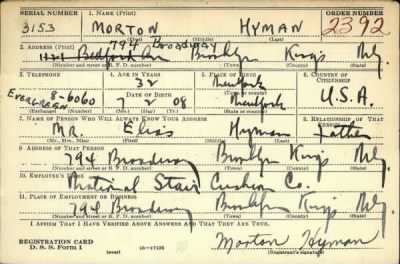 SERIAL NUMBER 1. NAME (Print) ORDER NUMBER
3153 MORTON HYMAN 2392
(First) (Middle) (Last)
794 Broadway
2. ADDRESS (Print)
1121 Bedford Ave Brooklyn Kings N.Y.
(Number and street or R. F. D. number) (Town) (County) (State)
3. TELEPHONE 4. AGE IN YEARS 5. PLACE OF BIRTH 6. COUNTRY OF CITIZENSHIP
32 New York
Evergreen 8-6060 DATE OF BIRTH (Town or county)
7 2 08 New York U.S.A.
(Exchange) (Number) (Mo.) (Day) (Yr.) (State or country)
7. NAME OF PERSON WHO WILL ALWAYS KNOW YOUR ADDRESS 8. RELATIONSHIP OF THAT PERSON
Mr. Elias Hyman Father
(Mr., Mrs., Miss) (First) (Middle) (Last)
9. ADDRESS OF THAT PERSON
794 Broadway Brooklyn Kings N.Y.
(Number and street or R. F. D. number) (Town) (County) (State)
10. EMPLOYER'S NAME
National Stair Cushion Co.
11. PLACE OF EMPLOYMENT OR BUSINESS
794 Broadway Brooklyn Kings N.Y.
(Number and street or R. F. D. number) (Town) (County) (State)
I AFFIRM THAT I HAVE VERIFIED ABOVE ANSWERS AND THAT THEY ARE TRUE.
REGISTRATION CARD
D. S. S. Form 1 16—17105 Morton Hyman
(over) (Registrant's signature)